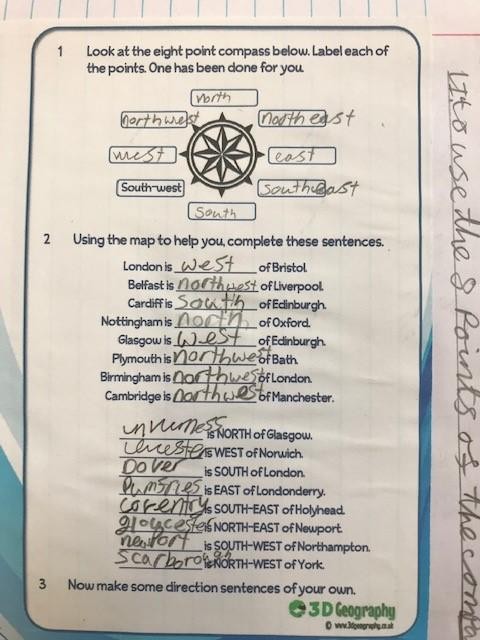 1 Look at the eight point compass below. Label each of
the points. One has been done for you.
north
northwest north east
west east
South-west southeast
South
2 Using the map to help you, complete these sentences.
London is west of Bristol.
Belfast is northwest of Liverpool.
Cardiff is south of Edinburgh.
Nottingham is north of Oxford.
Glasgow is west of Edinburgh.
Plymouth is northwest of Bath.
Birmingham is northwest of London.
Cambridge is northwest of Manchester.
is NORTH of Glasgow.
is WEST of Norwich.
Dover is SOUTH of London.
Dumfries is EAST of Londonderry.
coventry is SOUTH-EAST of Holyhead.
gloucester is NORTH-EAST of Newport.
newport is SOUTH-WEST of Northampton.
Scarborough is NORTH-WEST of York.
3 Now make some direction sentences of your own.
3D Geography
© www.3dgeography.co.uk
to use the 8 Points of the